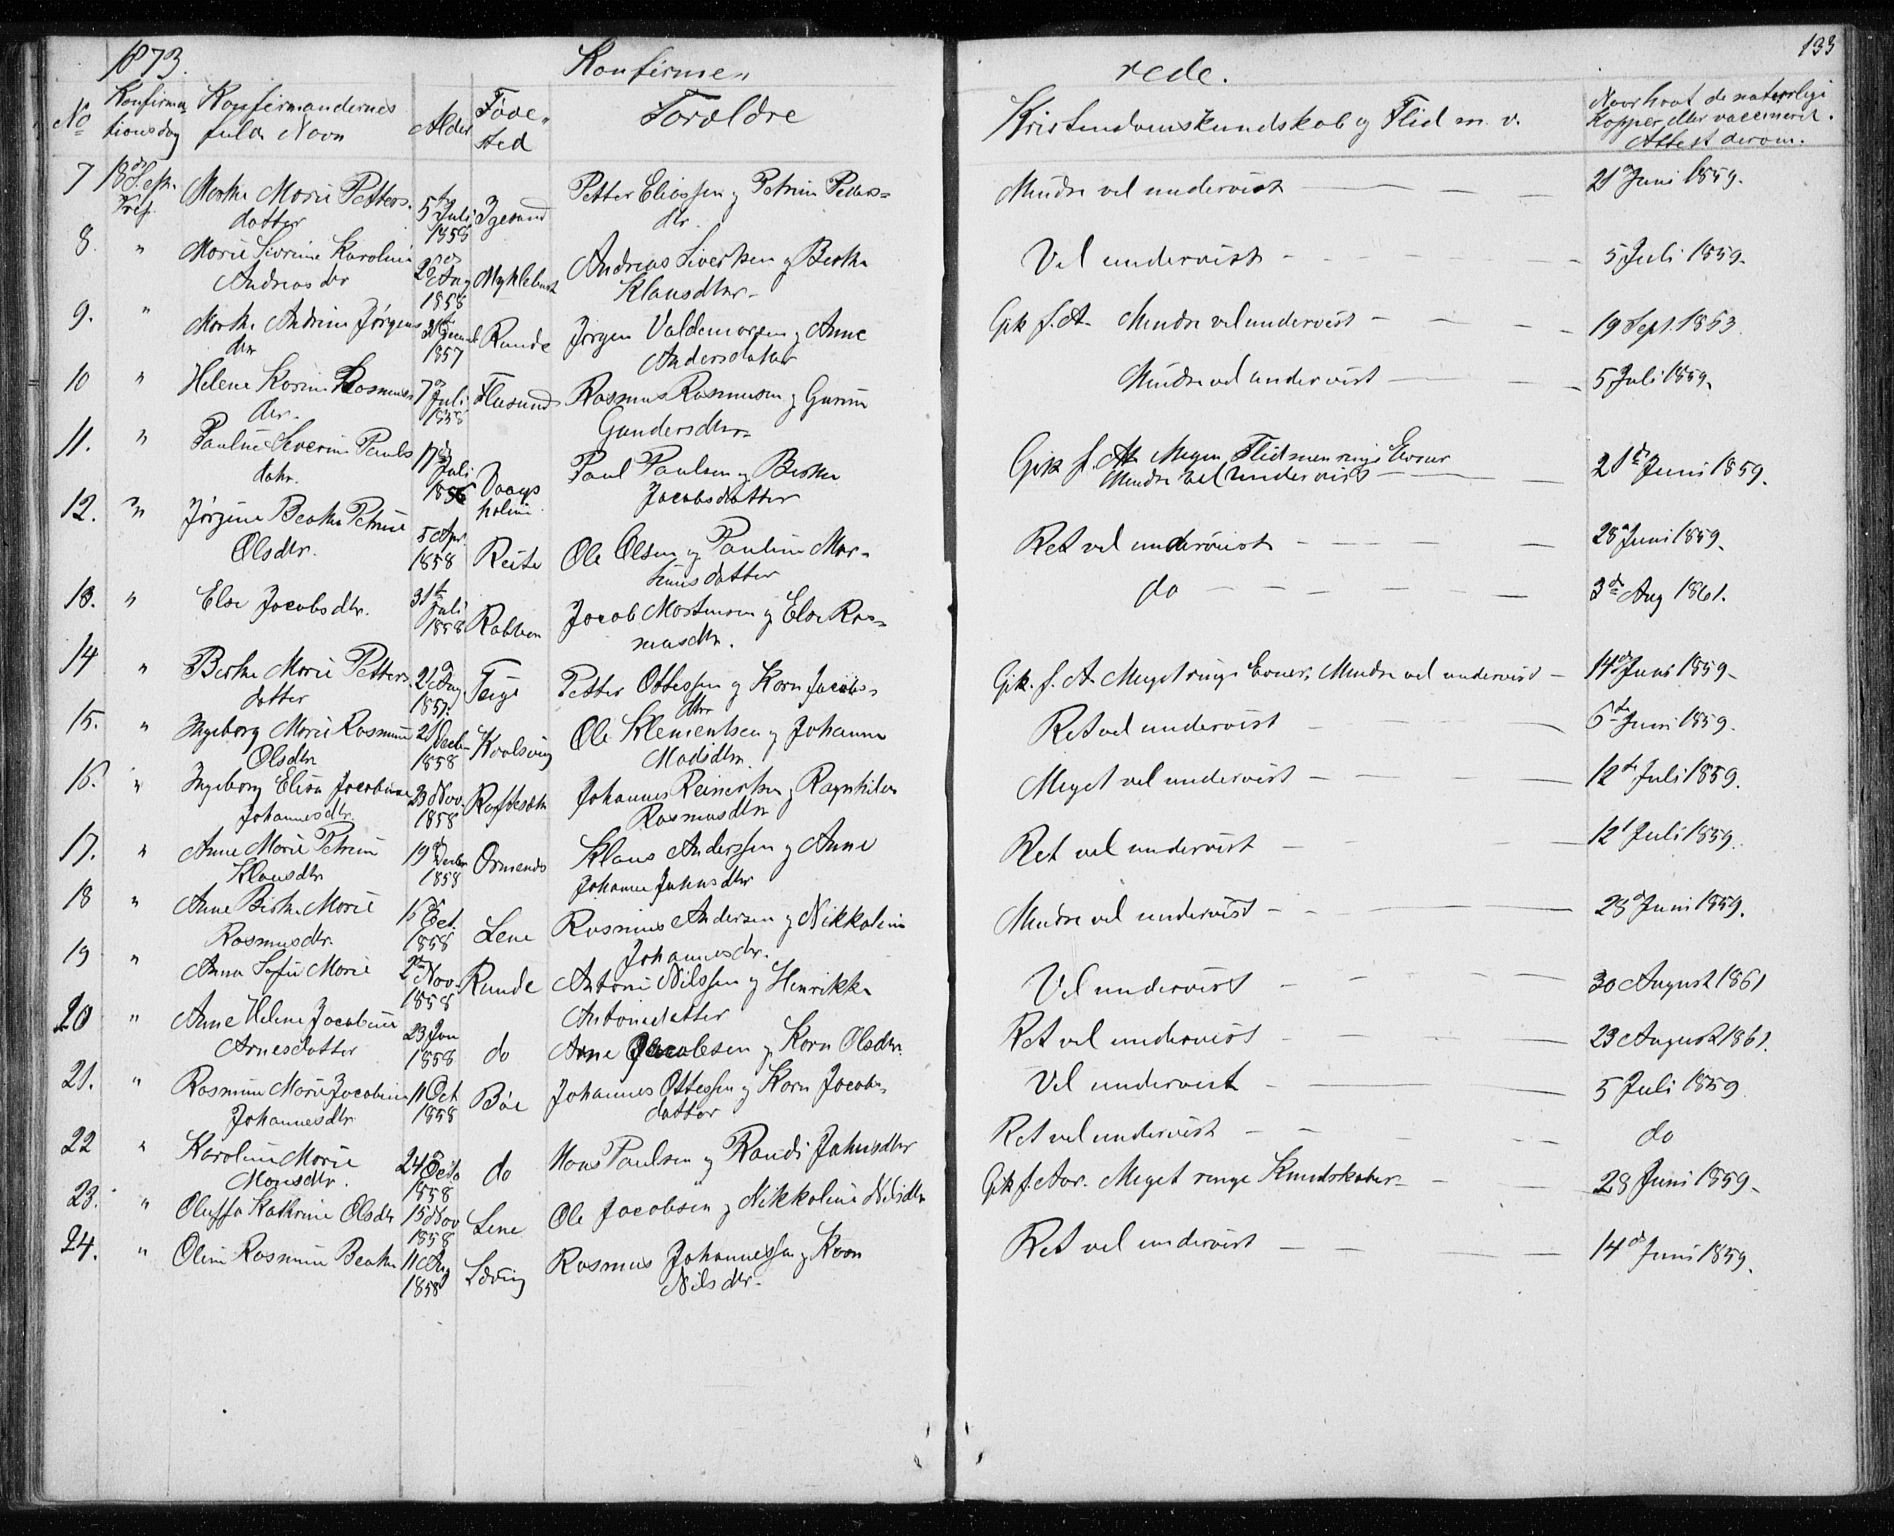 1873.
Konfirme-
rede.
133
No
Konfirma
tionsdag
Konfirmandernes
fulde Navn
Alder
Føde-
sted
Forældre
Kristendomskundskab og Flid m. v.
Naar havt de naturlige
Kopper eller vaccineret.
Attest derom.
7 Marthe Marie Petters- 5te Juli 1858 Igesund Petter Eliassen og Petrine Peders-
datter dtr.
Mindre vel undervist 21 Juni 1859.
8. " Marie Sivrine Karoline Aug 1858 Myklebust Andreas Sivertsen og Berthe
Andreasdtr Klausdtr
Vel undervist 5 Juli 1859.
9. " Marthe Andrine Jørgens 1857 Runde Jørgen Valdemarsen og Anne
dtr Andersdatter
Gik f. A. Mindre vel undervist 19 Sept. 1853
10 " Helene Karine Rasmus 7 Juli 1858 Flusund Rasmus Rasmusen og Gurine
dtr. Gundersdtr
Mindre vel undervist 5 Juli 1859.
11. " Pauline Severine Pauls 17 Juli Vaags Paul Paulsen og Berthe
datr. holm Jacobsdatter
Gik f. A. Megen Flid men ringe Evner
Mindre vel undervist 21de Juni 1859.
12. " Jørgine Beathe Petrine 5 Apr. 1858 Reite Ole Olsen og Pauline Mar-
Olsdtr. tinusdatter
Ret vel undervist 28 Juni 1859.
13. " Else Jacobsdtr. 31te Juli 1858 Rabben Jacob Mortensen og Else Ras-
musdtr.
do 3de Aug 1861.
14 " Berthe Marie Petters- Aug 1857. Teige Petter Ottessen og Karn Jacobs-
datter dtr
Gik. f. A. Meget ringe Evner, Mindre vel undervist 14de Juni 1859
15. " Ingeborg Marie Rasmine 21 Decb 1858 Kvalsvig Ole Klementsen og Johanne
Olsdtr Madsdtr
Ret vel undervist 6de Juni 1859.
16. " Ingeborg Elisa Jacobine 23 Nov. 1858 Røfstesæter Johannes Reinertsen og Ragnhilda
Johannesdtr. Rasmusdtr
Meget vel undervist 12de Juli 1859.
17. " Anne Marie Petrine 19 Decbr 1858 Osmends Klaus Anderssen og Anne
Klausdtr Johanne Jahnsdtr
Ret vel undervist 12 Juli 1859.
18 " Anne Birthe Marie 15 Oct. 1858 Lene Rasmus Andersen og Nikkoline
Rasmusdtr. Johannesdtr.
Mindre vel undervist 28 Juni 1859.
19 " Anna Sofie Marie 2 Nov. 1858 Runde Antoni Nilssen og Henrikke
Antonidatter
Vel undervist 30 August 1861
20 " Anne Helene Jacobine 23 Jan 1858 do Arne Jacobsen og Karn Olsdtr.
Arnesdatter
Ret vel undervist 23 August 1861.
21. " Rasmine Marie Jacobine 11 Oct 1858 Bøe Johannes Ottessen og Karn Jacobs-
Johannesdtr datter
Vel undervist 5 Juli 1859
22 " Karoline Marie 24 Octb 1858 do Mons Paulsen og Randi Jahnsdtr
Monsdtr.
Ret vel undervist do
23. " Oluffa Kathrine Olsdtr 15 Nov 1858 Lene Ole Jacobsen og Nikkoline Nilsdtr
Gik f. Aar. Meget ringe Kundskaber 28 Juni 1859
24. " Oline Rasmine Beathe 11 Aug 1858 Løvig Rasmus Johannessen og Karn
Nilsdtr.
Ret vel undervist 14de Juni 1859.